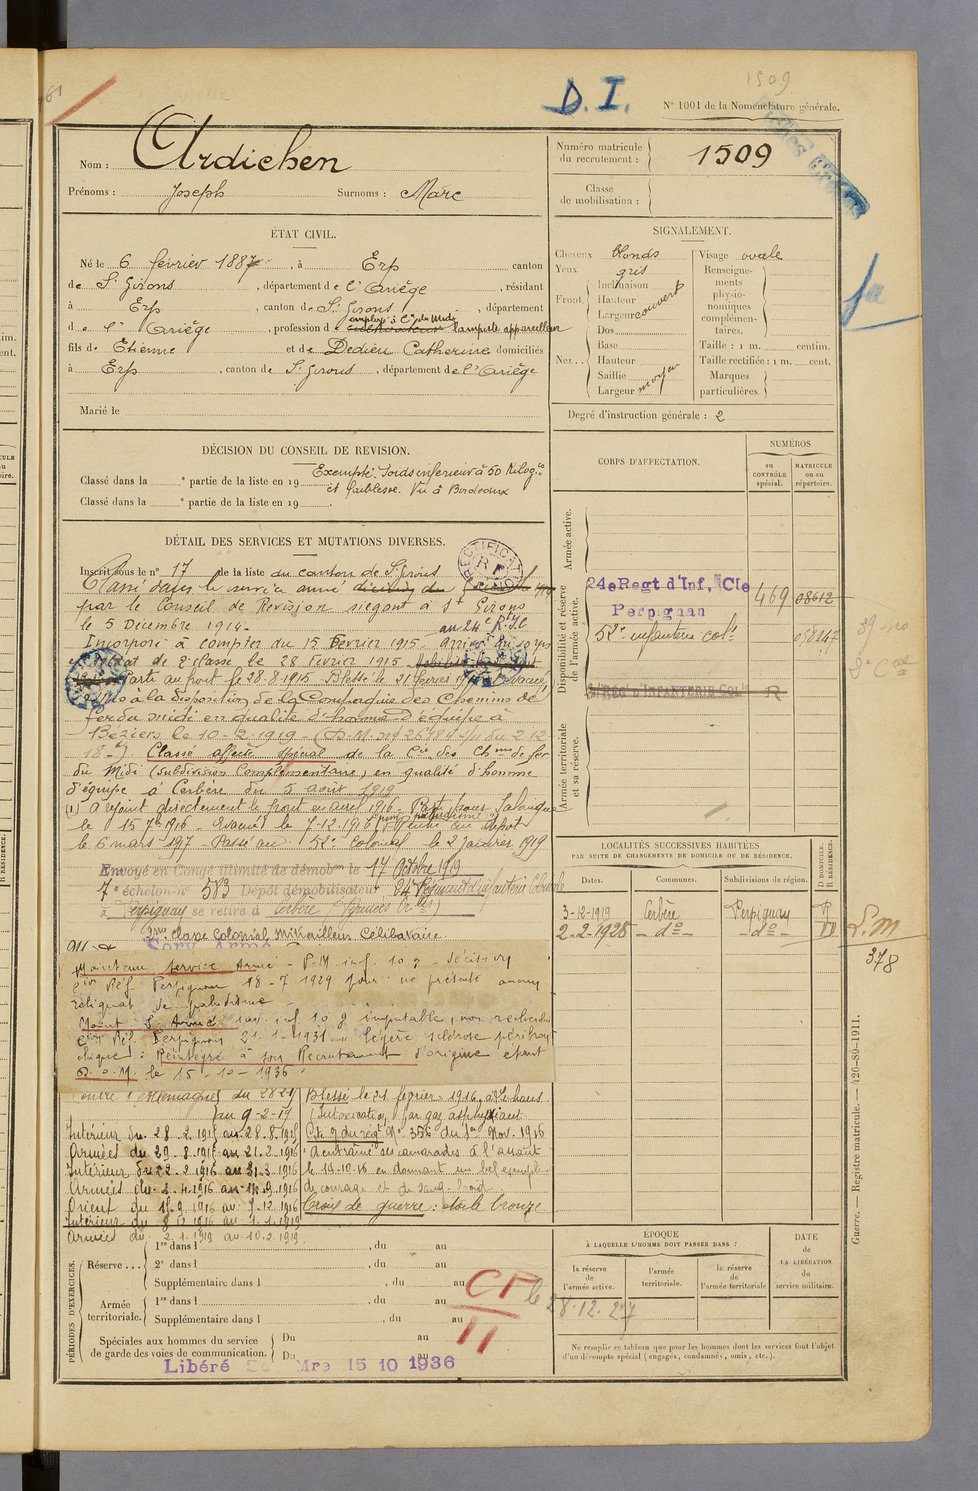 1509
D. I.
N° 1001 de la Nomenclature générale.
Nom : Ardichen
Prénoms : Joseph Surnoms : Marc
Numéro matricule du recrutement : 1509
Classe de mobilisation :
ÉTAT CIVIL.
Né le 6 février 1887, à Erp canton
de St Girons, département de l'Ariège, résidant
à Erp, canton de St Girons, département
de l'Ariège, profession de cultivateur employé à Cie du Midi lampiste appareilleur
fils de Etienne et de Dedieu Catherine domiciliés
à Erp, canton de St Girons, département de l'Ariège
Marié le
SIGNALEMENT.
Cheveux blonds
Yeux gris
Front Inclinaison
Hauteur
Largeur couvert
Dos
Nez Base
Hauteur
Saillie
Largeur moyen
Visage ovale
Renseignements physionomiques complémentaires.
Taille : 1 m. centim.
Taille rectifiée : 1 m. cent.
Marques particulières
Degré d'instruction générale : 2
DÉCISION DU CONSEIL DE REVISION.
Exempté. Poids inférieur à 50 Kilogs
Classé dans la e partie de la liste en 19 et faiblesse. Vu à Bordeaux
Classé dans la e partie de la liste en 19
CORPS D'AFFECTATION.
NUMÉROS
au CONTRÔLE spécial.
MATRICULE ou au répertoire.
Armée active.
Disponibilité et réserve de l'armée active.
24e Regt d'Inf, Cle 469 08612
Perpignan
52e infanterie cole
D'INFANTERIE COL
Armée territoriale et sa réserve.
DÉTAIL DES SERVICES ET MUTATIONS DIVERSES.
RECTIFICATION
Inscrit sous le n° 17 de la liste du canton de St Girons
Classé dans le service armé
par le Conseil de Revision siégeant à St Girons
le 5 Décembre 1914. au 24e R.I.C
Incorporé à compter du 15 Février 1915. Arrivé au corps
et soldat de 2e classe le 28 février 1915.
Parti au front le 28.8.1915 Blessé le 21 février
mis à la disposition de la Compagnie des Chemins de
fer du midi en qualité d'homme d'équipe à
Beziers le 10-12-1919
Classé affecté spécial de la Cie des Chins de fer
du Midi (subdivision Complémentaire) en qualité d'homme
d'équipe à Cerbère du 5 août 1919
(1) a rejoint directement le front en avril 1916. Parti pour Salonique
le 15 7bre 1916. Evacué le 7-12-1916 pour paludisme Rentré au dépôt
le 6 mars 1917 - Passé au 52e colonial le 2 janvier 1919
Envoyé en Congé illimité de démobon le 17 Octobre 1919
7e échelon n° 583 Dépôt démobilisateur 24e Régiment d'infanterie Coloniale
à Perpignan se retire à Cerbère (Pyrénées Orles)
2me classe Colonial Mitrailleur Célibataire
Maintenu service Armé - P.M. inf. 10 % - décision
Con Réf. Perpignan 18-7-1929 pour : ne présente aucun
reliquat de paludisme
Maint S. Armé inf 10 % imputable, non
Con Réf. Perpignan 21-1-1931 " légère sclérose péribron
chique : Réintégré à son Recrutement d'origine étant
D.O.M. le 15-10-1936
Contre l'Allemagne du
au 9-2-19
Intérieur du 28.2.1915 au 28.8.1915
Armées du 29.8.1915 au 21.2.1916
Intérieur du 22.2.1916 au 31.3.1916
Armées du 1916 au 14.9.1916
Orient du 15.9.1916 au 7.12.1916
Intérieur du 8.12.1916 au 1.1.1919
Armées du 2.1.1919 au 10.2.1919
Blessé le 21 février 1916
(Intoxication par gaz asphyxiant
Cité O. du régt N° 356 du 1er Nov. 1916
"A entraîné ses camarades à l'assaut
le 14-10-16 en donnant un bel exemple
de courage et de sang-froid
Croix de guerre : étoile bronze
PÉRIODES D'EXERCICES.
Réserve 1re dans l , du au
2e dans l , du au
Supplémentaire dans l , du au
Armée territoriale. 1re dans l , du au
Supplémentaire dans l , du au
Spéciales aux hommes du service de garde des voies de communication. Du au
Du au
Libéré Mre 15 10 1936
CP
11
le 28.12.27
LOCALITÉS SUCCESSIVES HABITÉES
PAR SUITE DE CHANGEMENTS DE DOMICILE OU DE RÉSIDENCE.
Dates. Communes. Subdivisions de région. D DOMICILE. R RÉSIDENCE.
3-12-1919 Cerbère Perpignan R
2-2-1928 - do - - do - D
S.M
378
ÉPOQUE
À LAQUELLE L'HOMME DOIT PASSER DANS :
la réserve de l'armée active.
l'armée territoriale.
la réserve de l'armée territoriale
DATE de LA LIBÉRATION du service militaire.
Ne remplir ce tableau que pour les hommes dont les services font l'objet
d'un décompte spécial (engagés, condamnés, omis, etc.).
Guerre. — Registre matricule. — 426-89-1911.